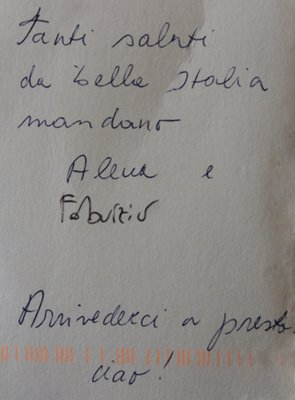 Tanti saluti
da bella Italia
mandano
Alena e
Fabrizio
Arrivederci a presto.
ciao!